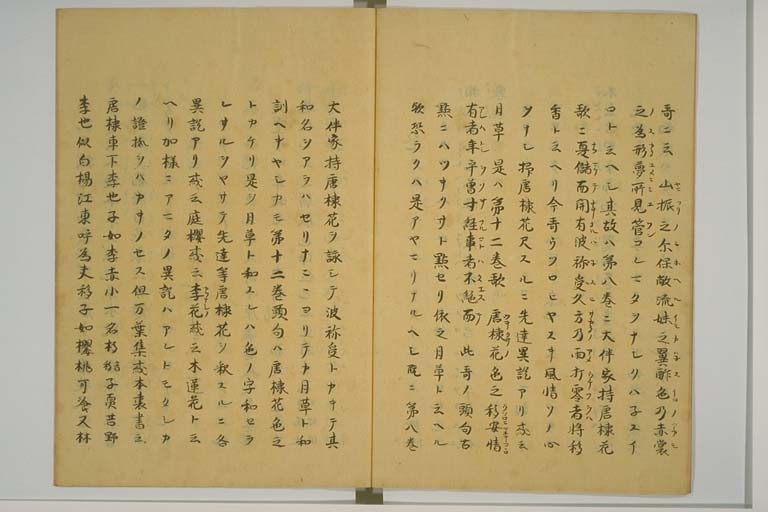 哥ニ云 山振之尓保敝流妹之翼酢色乃赤裳
之為形夢所見管コレニタツナレハハ子スイ
ロト云ヘシ其故ハ第八巻ニ大伴家持唐棣花
歌ニ夏儲而開有波祢受久方乃雨打零者将移
香ト云ヘリ今哥ウツロヒヤスキ風情ソノ心
タナシ 抑唐棣花尺スルニ先達異説アリ或云
月草 是ハ第十二巻歌 唐棣花色之移安情
有者年乎曽寸経事者不絶而 此哥ノ頭句古
點ニハツキクサト點セリ依之月草ト云ヘル
歟恐ラクハ是アヤマリナルヘシ既ニ第八巻
大伴家持唐棣花ヲ詠シテ波祢受トカキテ其
和名シアラハセリナニニヨリテカ月草ト和
訓ヘナヤシカモ第十二巻頭句ハ唐棣花色之
トカケリ是シ月草ト和スレハ色ノ字和セラ
レサルシヤサテ先達等唐棣花シ釈スルニ各
異説アリ或云庭櫻或云李花或云木蓮花ト云
ヘリ加様ニアマタノ異説ハアレトモタシカ
ノ證拠シハカキノセス但万葉集或本裏書云
唐棣車下李也子如李赤小一名栘 子貢苔野
李也似白楊江東呼為夫栘子如櫻桃可食又林